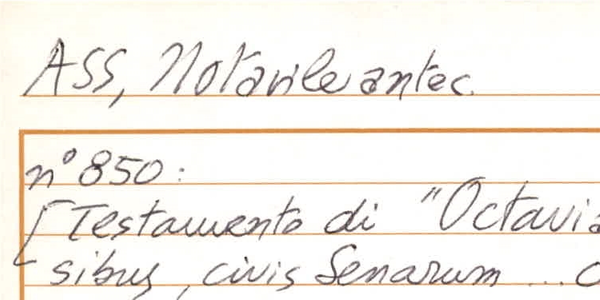 ASS, Notarile antec.
n° 850:
[Testamento di "Octavia
sibus, civis Senarum ... c